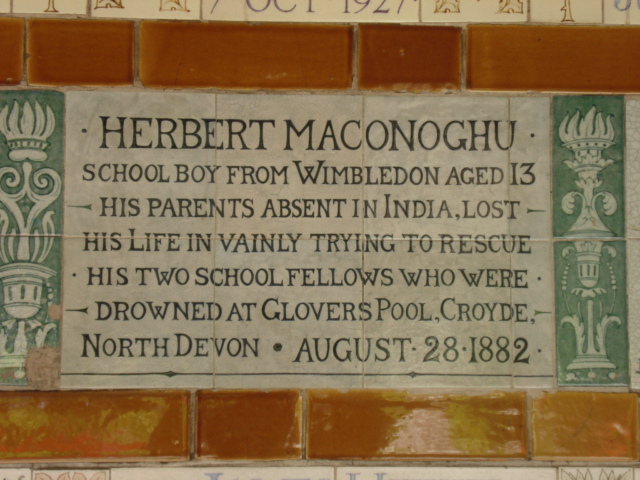 7 OCT 1927
· HERBERT MACONOGHU ·
SCHOOL BOY FROM WIMBLEDON AGED 13
HIS PARENTS ABSENT IN INDIA, LOST
HIS LIFE IN VAINLY TRYING TO RESCUE
· HIS TWO SCHOOLFELLOWS WHO WERE ·
DROWNED AT GLOVERS POOL, CROYDE,
NORTH DEVON · AUGUST · 28 · 1882 ·